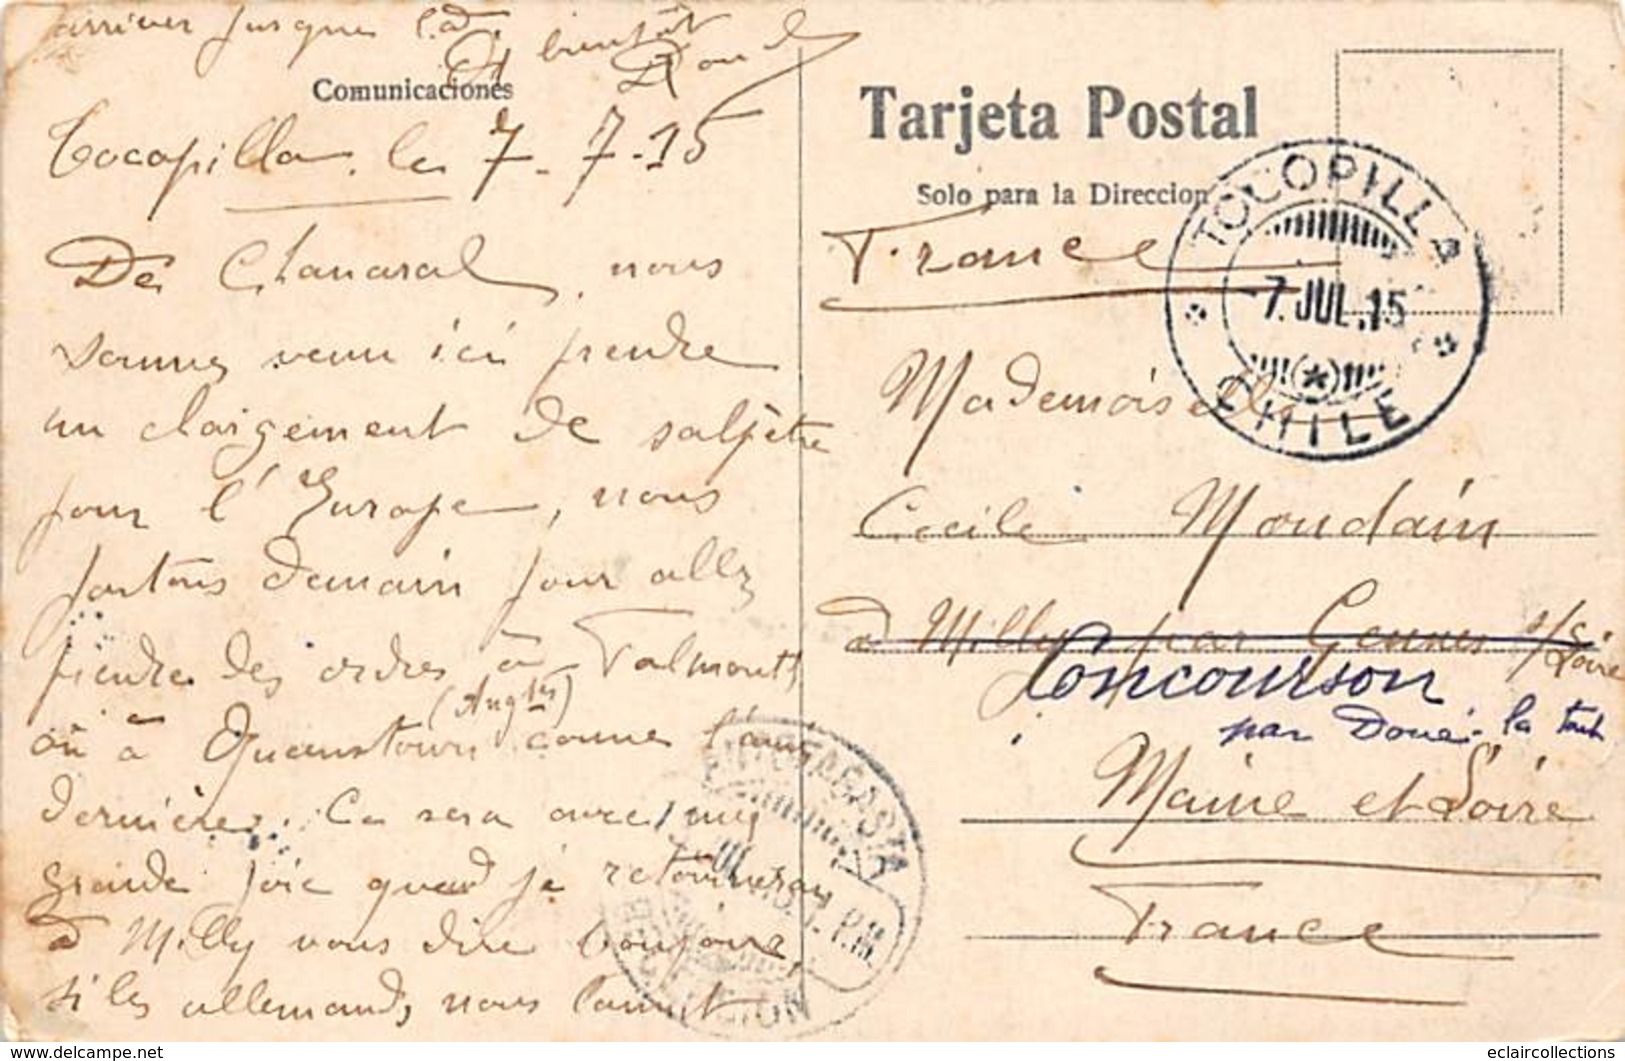 arriver jusque là.
A bientôt
Comunicaciones
Tocopilla. le 7-7-15
De Chanaral, nous
sommes venu ici prendre
un chargement de salpêtre
pour l'Europe, nous
partons demain pour allez
prendre des ordres à Falmouth
où à Queenstown (Angltre) comme l'an
dernière. Ce sera avec une
grande joie quand je retournerai
à Milly vous dire bonjour,
si les allemands nous laisse
Tarjeta Postal
Solo para la Direccion
France
Mademoiselle
Cecile Moudain
à Milly par Gennes s/Loire
Concourson
par Doué-la font
Maine et Loire
France
TOCOPILLA
-7.JUL.15
CHILE
ANTOFAGASTA
eclaircollections